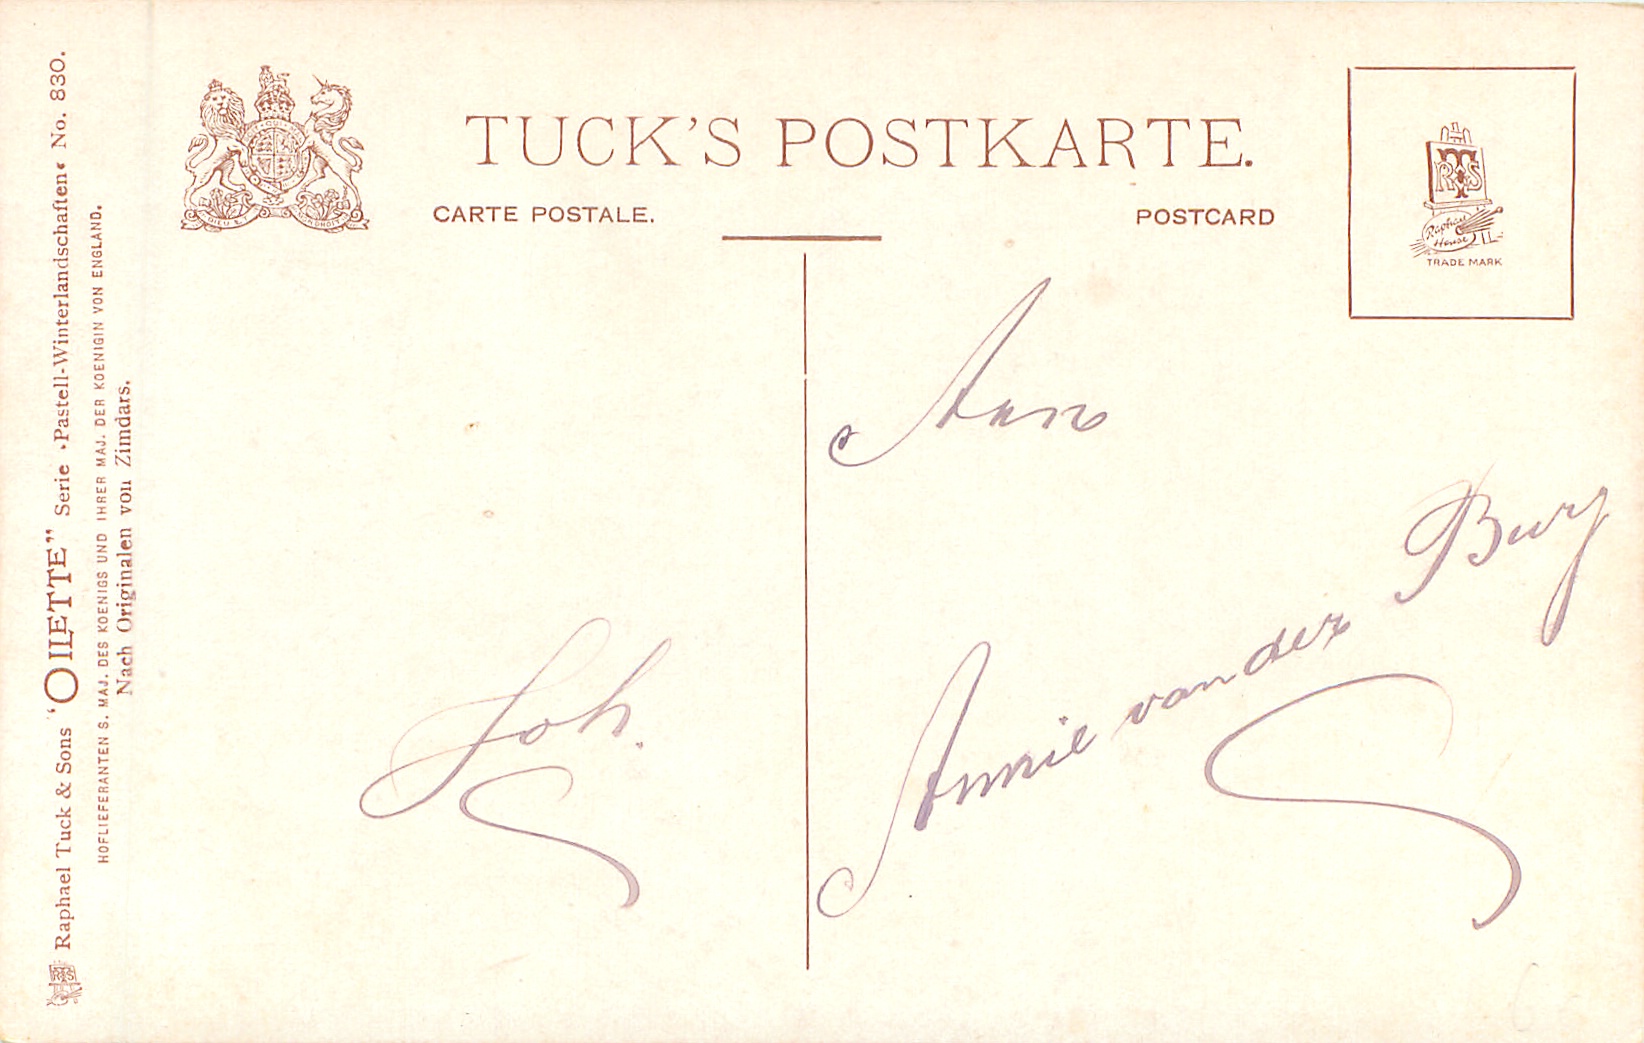 TUCK'S POSTKARTE.
CARTE POSTALE.
POSTCARD
RTS
Raphael
House
TRADE MARK
Raphael Tuck & Sons ‘OILETTE” Serie „Pastell-Winterlandschaften“ No. 830.
HOFLIEFERANTEN S. MAJ. DES KOENIGS UND IHRER MAJ. DER KOENIGIN VON ENGLAND.
Nach Originalen von Zimdars.
Joh.
Aan
Annie van der Burg